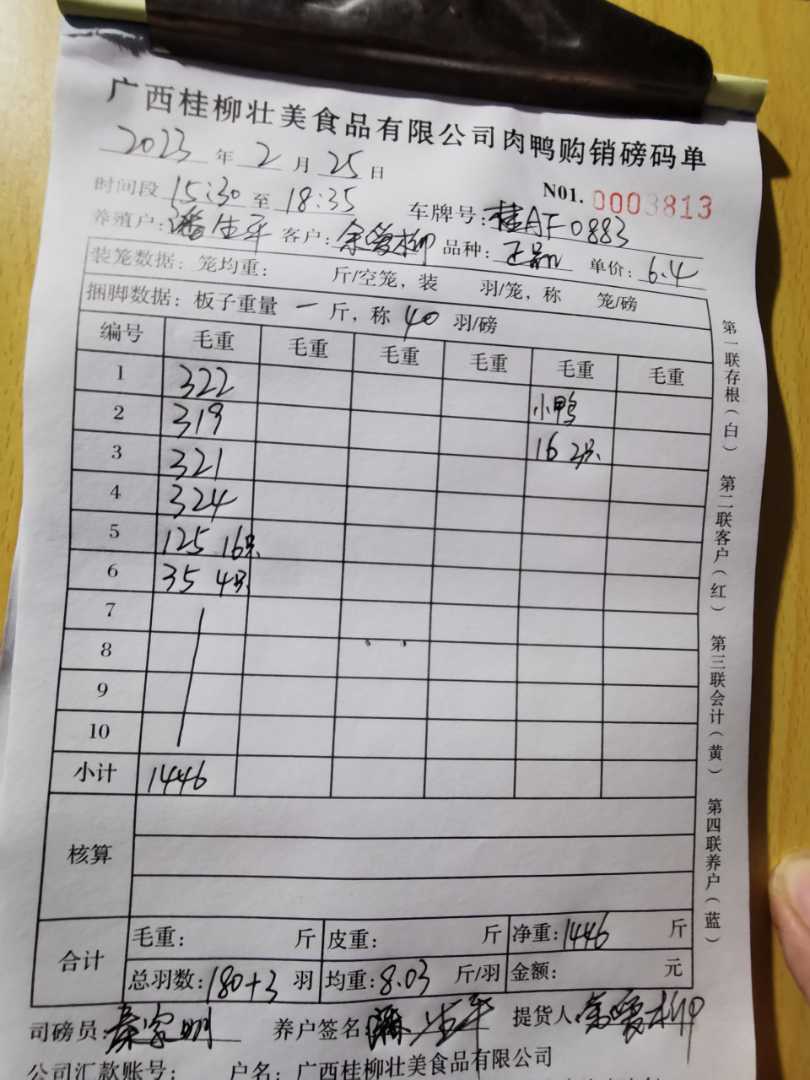 广西桂柳壮美食品有限公司肉鸭购销磅码单
2023 年 2 月 25 日
N01. 0003813
时间段 15:30 至 18:35 车牌号: 桂AF0883
养殖户: 潘生平 客户: 余爱柳 品种: 正 单价: 6.4
装笼数据: 笼均重: 斤/空笼, 装 羽/笼, 称 笼/磅
捆脚数据: 板子重量 一 斤, 称 40 羽/磅
编号 毛重 毛重 毛重 毛重 毛重 毛重
1 322 小鸭
2 319 16 2只
3 321
4 324
5 125 16只
6 35 4只
7
8
9
10
小计 1446
核算
合计 毛重: 斤 皮重: 斤 净重: 1446 斤
总羽数: 180+3 羽 均重: 8.03 斤/羽 金额: 元
司磅员: 秦家明 养户签名: 潘生平 提货人: 余爱柳
公司汇款账号: 户名: 广西桂柳壮美食品有限公司
第一联存根(白)
第二联客户(红)
第三联会计(黄)
第四联养户(蓝)